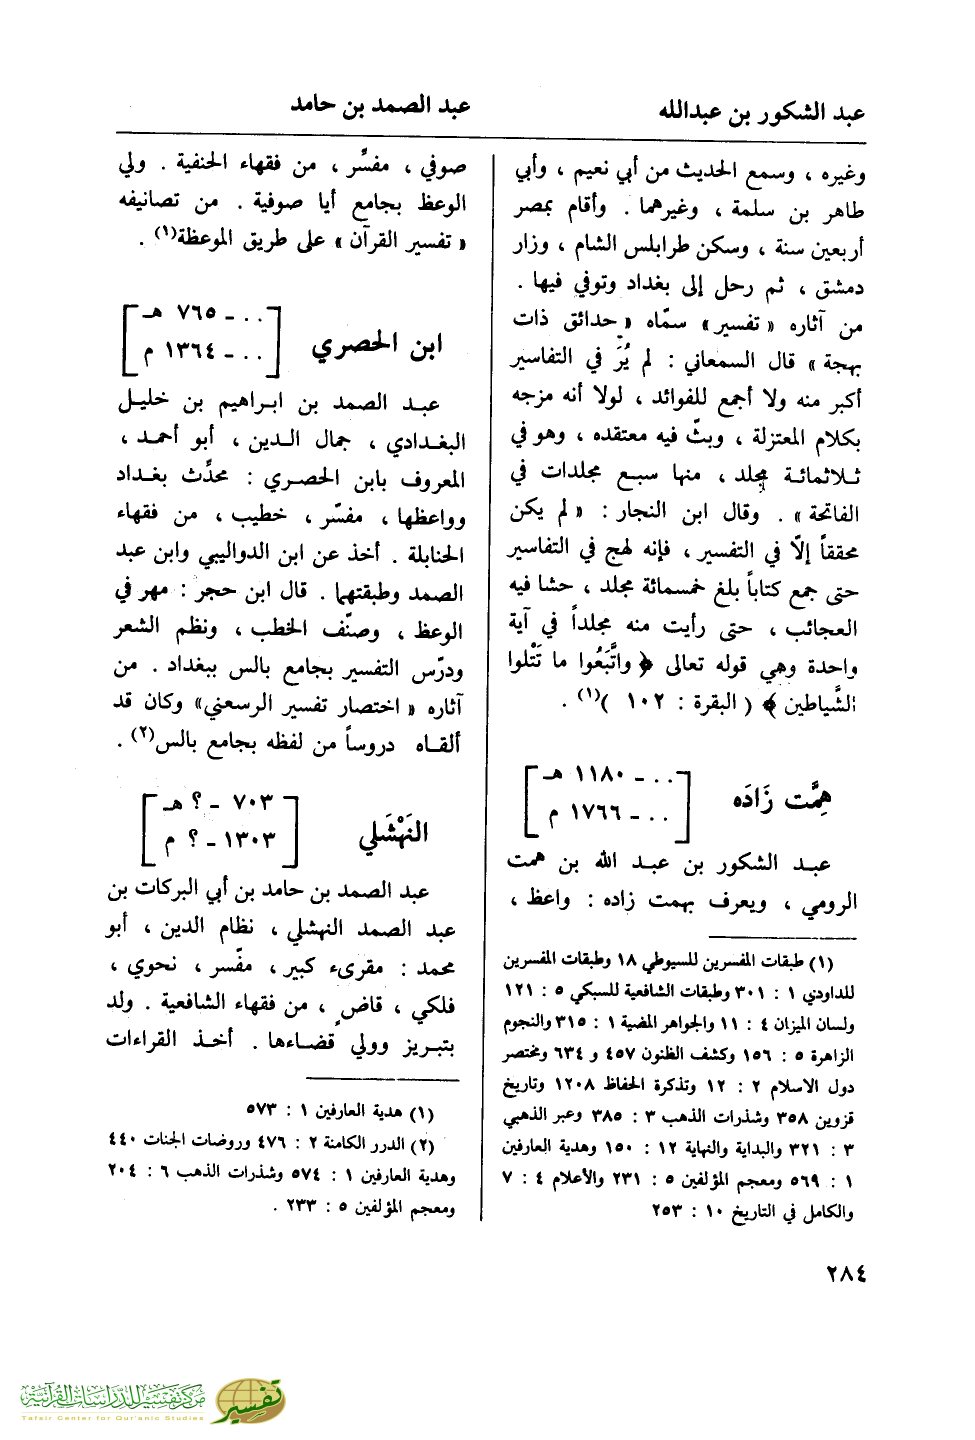 عبد الشكور بن عبدالله
عبد الصمد بن حامد
وغيره ، وسمع الحديث من أبي نعيم ، وأبي
طاهر بن سلمة ، وغيرهما . وأقام بمصر
أربعين سنة ، وسكن طرابلس الشام ، وزار
دمشق ، ثم رحل إلى بغداد وتوفي فيها .
من آثاره « تفسير» سمّاه « حدائق ذات
بهجة » قال السمعاني : لم يُرَ في التفاسير
أكبر منه ولا أجمع للفوائد ، لولا أنه مزجه
بكلام المعتزلة ، وبثّ فيه معتقده ، وهو في
ثلاثمائة مجلد ، منها سبع مجلدات في
الفاتحة » . وقال ابن النجار : « لم يكن
محققاً إلّا في التفسير ، فإنه لهج في التفاسير
حتى جمع كتاباً بلغ خمسمائة مجلد ، حشا فيه
العجائب ، حتى رأيت منه مجلداً في آية
واحدة وهي قوله تعالى ﴿ واتَّبَعُوا ما تَتْلوا
الشَّياطين ﴾ ( البقرة : ١٠٢ )(١) .
همَّت زَادَه
. . ـ ١١٨٠ هـ
. . ـ ١٧٦٦ م
عبد الشكور بن عبد الله بن همت
الرومي ، ويعرف بهمت زاده : واعظ ،
(١) طبقات المفسرين للسيوطي ١٨ وطبقات المفسرين
للداودي ١ : ٣٠١ وطبقات الشافعية للسبكي ٥ : ١٢١
ولسان الميزان ٤ : ١١ والجواهر المضية ١ : ٣١٥ والنجوم
الزاهرة ٥ : ١٥٦ وكشف الظنون ٤٥٧ و ٦٣٤ ومختصر
دول الاسلام ٢ : ١٢ وتذكرة الحفاظ ١٢٠٨ وتاريخ
قزوين ٣٥٨ وشذرات الذهب ٣ : ٣٨٥ وعبر الذهبي
٣ : ٣٢١ والبداية والنهاية ١٢ : ١٥٠ وهدية العارفين
١ : ٥٦٩ ومعجم المؤلفين ٥ : ٢٣١ والأعلام ٤ : ٧
والكامل في التاريخ ١٠ : ٢٥٣
صوفي ، مفسِّر ، من فقهاء الحنفية . ولي
الوعظ بجامع أيا صوفية . من تصانيفه
« تفسير القرآن » على طريق الموعظة(١) .
ابن الحصري
. . ـ ٧٦٥ هـ
. . ـ ١٣٦٤ م
عبد الصمد بن ابراهيم بن خليل
البغدادي ، جمال الدين ، أبو أحمد ،
المعروف بابن الحصري : محدِّث بغداد
وواعظها ، مفسّر ، خطيب ، من فقهاء
الحنابلة . أخذ عن ابن الدواليبي وابن عبد
الصمد وطبقتهما . قال ابن حجر : مهر في
الوعظ ، وصنّف الخطب ، ونظم الشعر
ودرّس التفسير بجامع بالس ببغداد . من
آثاره « اختصار تفسير الرسعني» وكان قد
ألقاه دروساً من لفظه بجامع بالس(٢) .
النَهْشَلي
٧٠٣ ـ ؟ هـ
١٣٠٣ ـ ؟ م
عبد الصمد بن حامد بن أبي البركات بن
عبد الصمد النهشلي ، نظام الدين ، أبو
محمد : مقرىء كبير ، مفّسر ، نحوي ،
فلكي ، قاضٍ ، من فقهاء الشافعية . ولد
بتبريز وولي قضاءها . أخذ القراءات
(١) هدية العارفين ١ : ٥٧٣
(٢) الدرر الكامنة ٢ : ٤٧٦ وروضات الجنات ٤٤٠
وهدية العارفين ١ : ٥٧٤ وشذرات الذهب ٦ : ٢٠٤
ومعجم المؤلفين ٥ : ٢٣٣ .
٢٨٤
مركز تفسير للدراسات القرآنية
Tafsir Center for Qur'anic Studies
تفسير